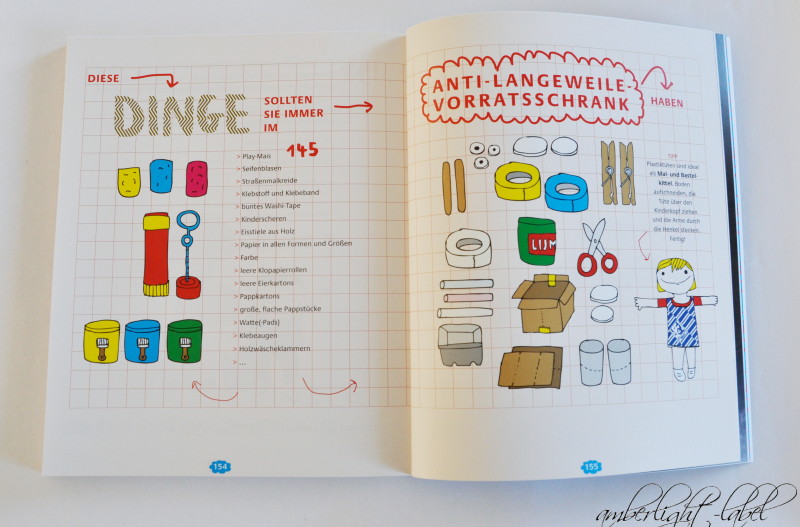 DIESE
DINGE
SOLLTEN
SIE IMMER
IM
145
> Play-Mais
> Seifenblasen
> Straßenmalkreide
> Klebstoff und Klebeband
> buntes Washi-Tape
> Kinderscheren
> Eisstiele aus Holz
> Papier in allen Formen und Größen
> Farbe
> leere Klopapierrollen
> leere Eierkartons
> Pappkartons
> große, flache Pappstücke
> Watte(-Pads)
> Klebeaugen
> Holzwäscheklammern
> ...
154
ANTI-LANGEWEILE-
VORRATSSCHRANK
HABEN
TIPP
Plastiktüten sind ideal
als Mal- und Bastel-
kittel. Boden
aufschneiden, die
Tüte über den
Kinderkopf ziehen
und die Arme durch
die Henkel stecken.
Fertig!
LIJM
155
amberlight-label